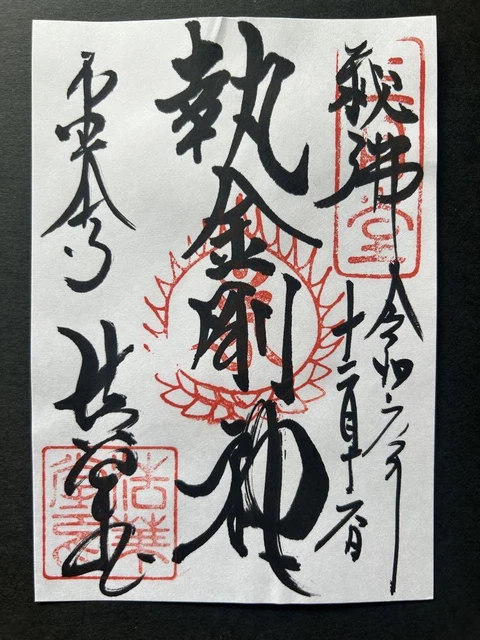 秘佛
令和六年
十二月十六日
執金剛神
東大寺
法華堂
法華堂印